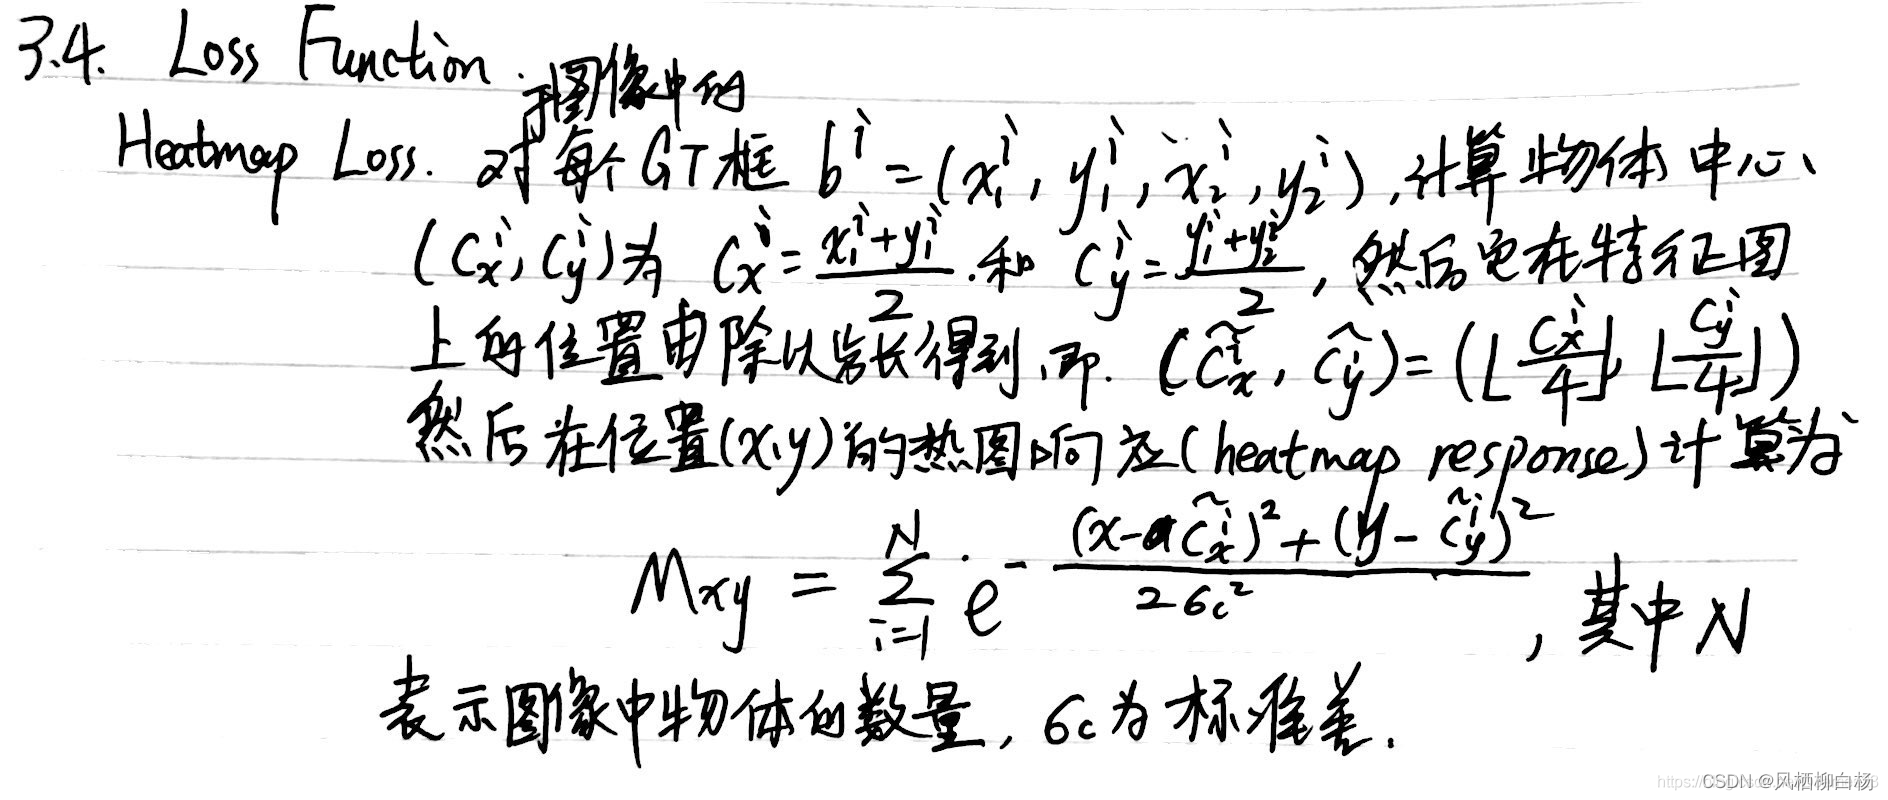 3.4. Loss Function.
于图像中的
Heatmap Loss. 对每个GT框 b^i = (x_1^i, y_1^i, x_2^i, y_2^i), 计算物体中心
(c_x^i, c_y^i)为 c_x^i = \frac{x_1^i+y_1^i}{2} 和 c_y^i = \frac{y_1^i+y_2^i}{2}, 然后它在特征图
上的位置由除以步长得到, 即. (\tilde{c}_x^i, \tilde{c}_y^i) = (⌊\frac{c_x^i}{4}⌋, ⌊\frac{c_y^i}{4}⌋)
然后在位置(x,y)的热图响应(heatmap response)计算为
M_{xy} = \sum_{i=1}^{N} e^{-\frac{(x-\tilde{c}_x^i)^2+(y-\tilde{c}_y^i)^2}{2σ_c^2}}, 其中N
表示图像中物体的数量, σ_c为标准差.
CSDN @风栖柳白杨